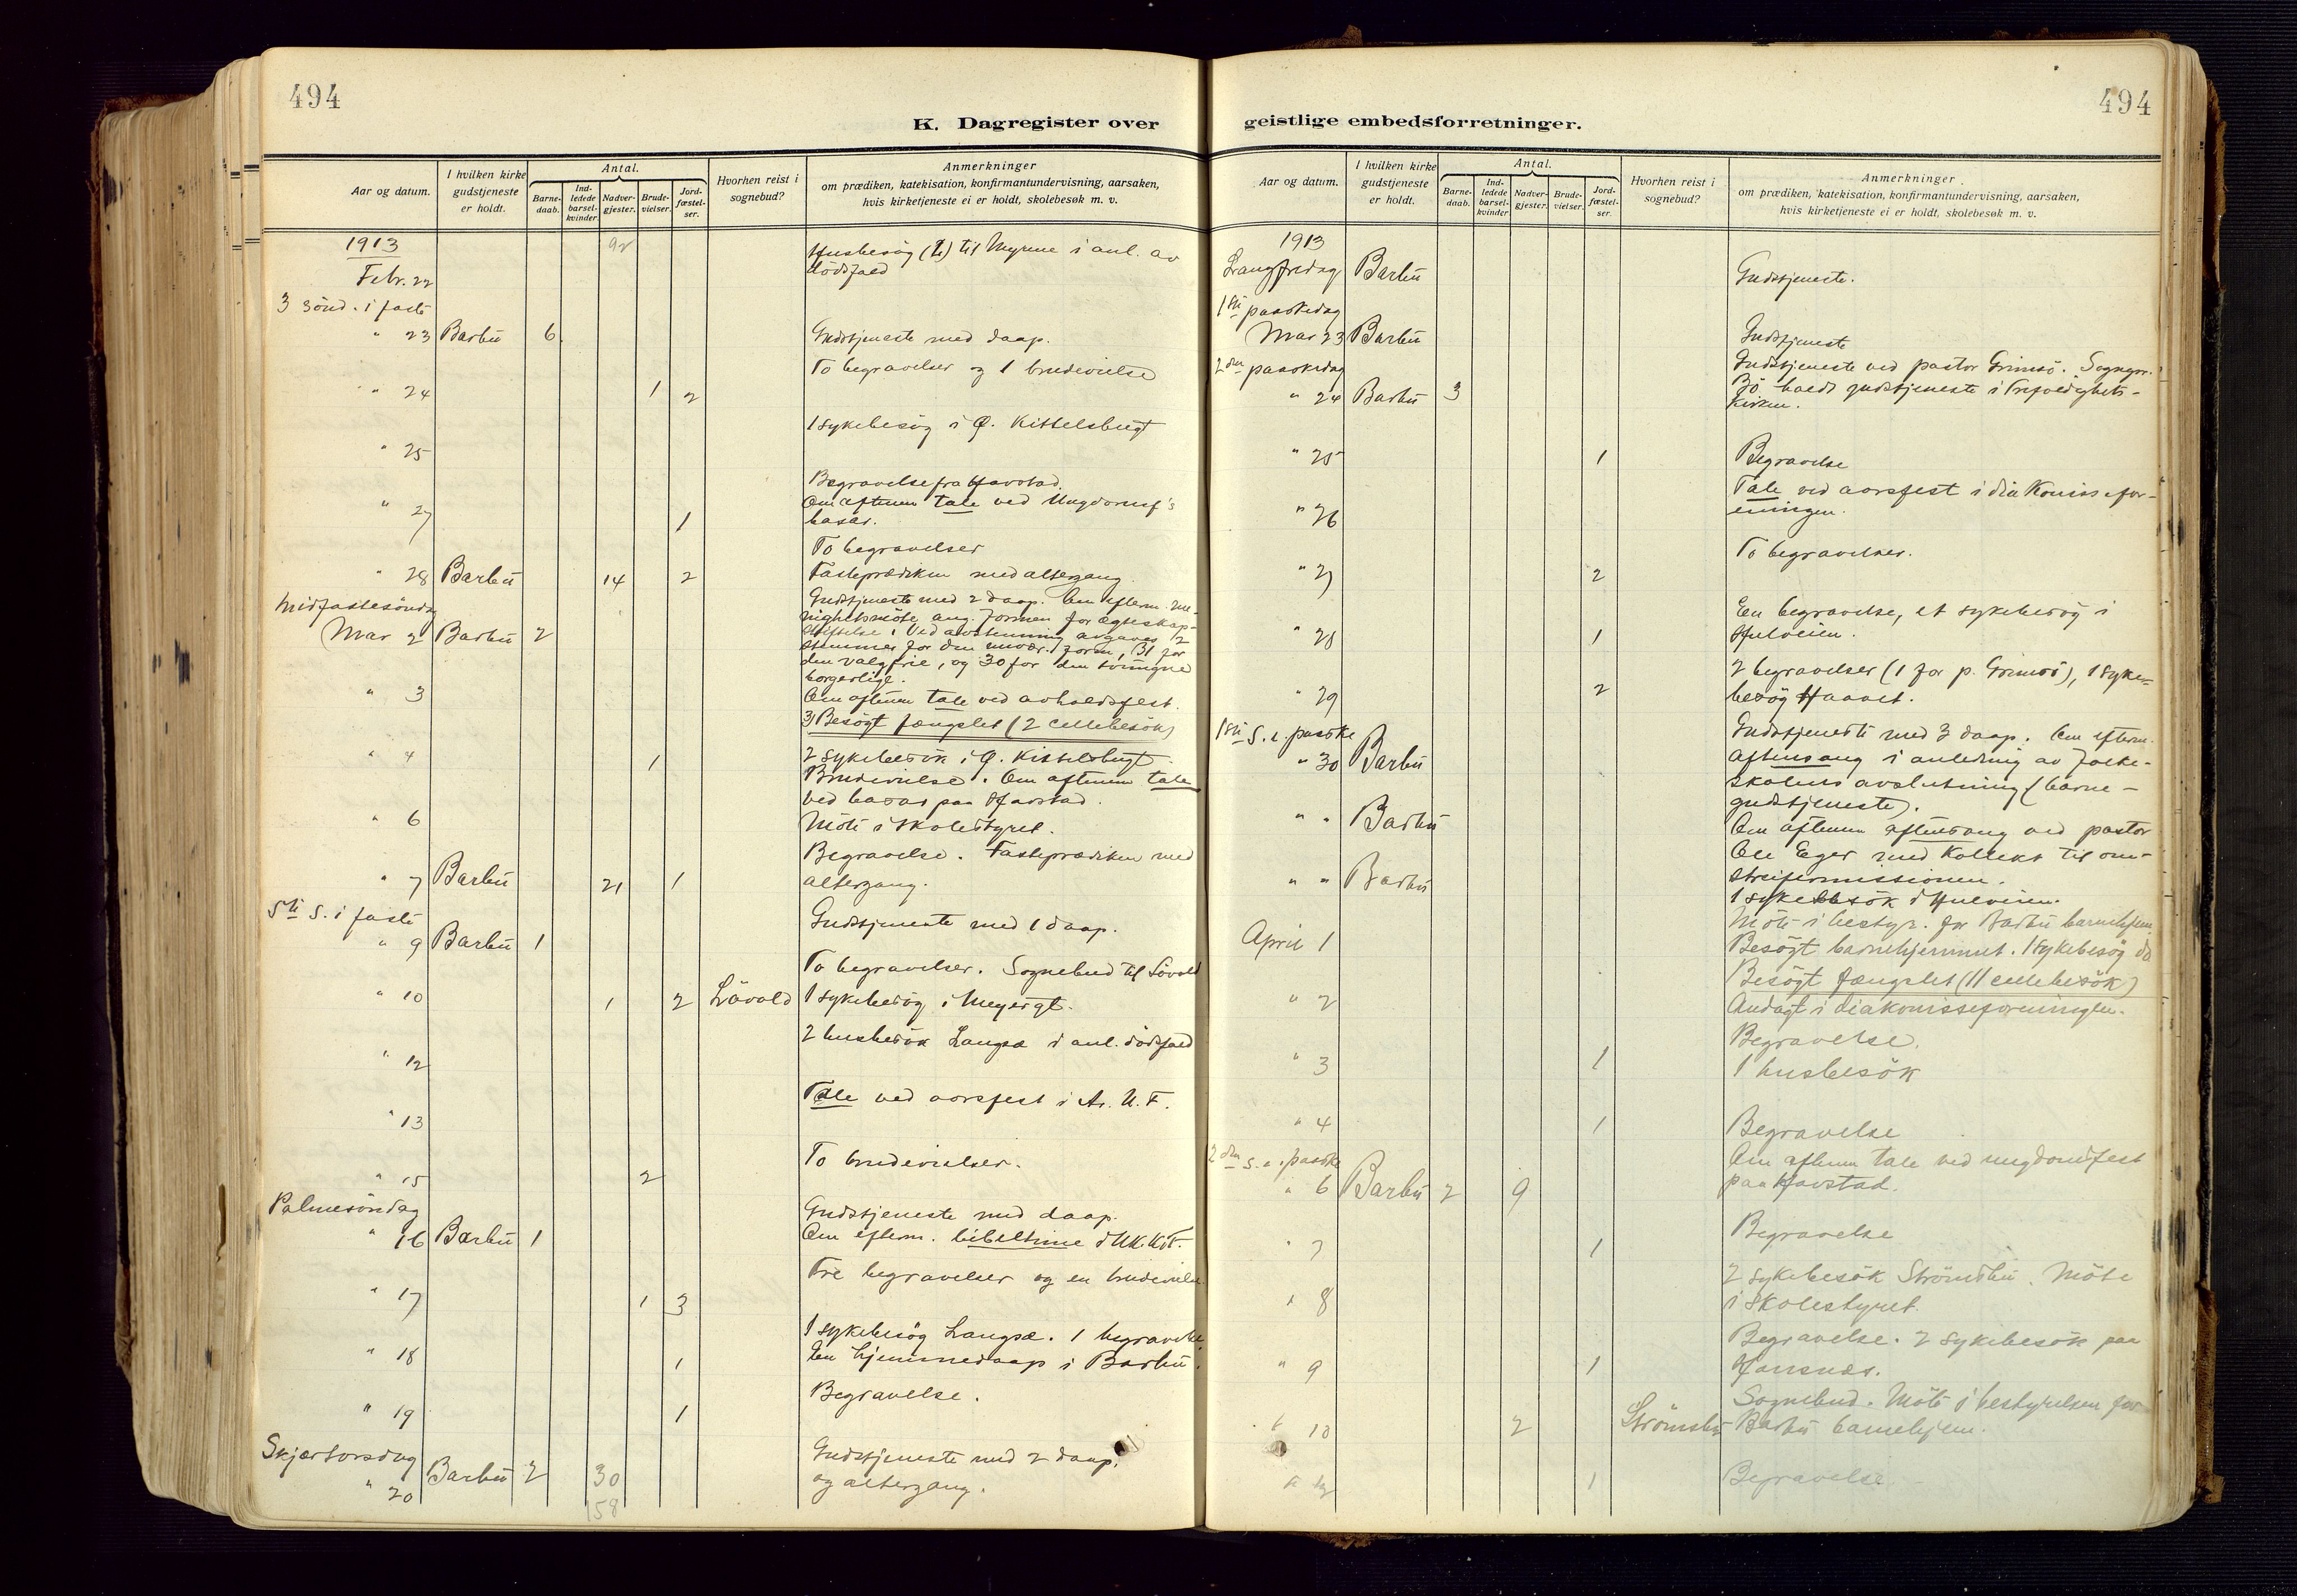 494
K. Dagregister over
Aar og datum.
I hvilken kirke gudstjeneste er holdt.
Antal.
Barne-daab.
Ind-ledede barsel-kvinder.
Nadver-gjester.
Brude-vielser.
Jord-fæstel-ser.
Hvorhen reist i sognebud?
Anmerkninger
om prædiken, katekisation, konfirmantundervisning, aarsaken,
hvis kirketjeneste ei er holdt, skolebesøk m. v.
1913 92 Husbesøg (2) til Myrene i anl. av
Febr. 22 dödsfald
3 sönd. i faste
" 23 Barbu 6 Gudstjeneste med daap.
" 24 1 2 To begravelser og 1 brudevielse
" 25 1 sykebesøg i Ø. Kittelsbugt
Begravelse fra Havstad.
" 27 1 Om aftenen tale ved Ungdomsf's
basar.
To begravelser
" 28 Barbu 14 2 Fasteprædiken med altergang.
Midfastesöndag Gudstjeneste med 2 daap. Om efterm. me-
Mar 2 Barbu 2 nighetsmöte ang. formen for ægteskap-
stiftelse. Ved avstemning avgaves 2
stemmer for den nuvær. form, 31 for
den valgfrie, og 30 for den tvungne
borgerlige.
" 3 Om aftenen tale ved avholdsfest.
3) Besögt fængslet (2 cellebesök)
" 4 1 2 sykebesök i Ø. Kittelsbugt.
Brudevielse. Om aftenen tale
ved basar paa Havstad.
" 6 Möte i skolestyret.
Begravelse. Fasteprædiken med
" 7 Barbu 21 1 altergang.
5te s. i faste
" 9 Barbu 1 Gudstjeneste med 1 daap.
To begravelser. Sognebud til Lövold
" 10 1 2 Lövold 1 sykebesög i Meyersgt.
" 12 2 husbesök Langsæ i anl. dödsfald
" 13 Tale ved aarsfest i Ar. U. F.
" 15 2 To brudevielser.
Palmesöndag Gudstjeneste med daap.
" 16 Barbu 1 Om efterm. bibeltime i
" 17 1 3 Tre begravelser og en brudevielse
1 sykebesøg Langsæ. 1 begravelse
" 18 1 En hjemmedaap i Barbu.
" 19 1 Begravelse.
Skjærtorsdag Gudstjeneste med 2 daap.
" 20 Barbu 2 30 og altergang.
158
494
geistlige embedsforretninger.
Aar og datum.
I hvilken kirke gudstjeneste er holdt.
Antal.
Barne-daab.
Ind-ledede barsel-kvinder.
Nadver-gjester.
Brude-vielser.
Jord-fæstel-ser.
Hvorhen reist i sognebud?
Anmerkninger
om prædiken, katekisation, konfirmantundervisning, aarsaken,
hvis kirketjeneste ei er holdt, skolebesøk m. v.
1913
Langfredag Barbu Gudstjeneste.
1ste paaskedag
Mar 23 Barbu Gudstjeneste
2den paaskedag Gudstjeneste ved pastor Grimsö. Sognepr.
" 24 Barbu 3 Bö holdt gudstjeneste i Trefoldighets-
kirken.
" 25 1 Begravelse
Tale ved aarsfest i diakonissefor-
" 26 eningen.
" 27 2 To begravelser.
En begravelse, et sykebesög i
" 28 1 Hulveien.
2 begravelser (1 for p. Grimsö), 1 syke-
" 29 2 besög Haavet.
1ste s. e. paaske Gudstjeneste med 3 daap. Om efterm.
" 30 Barbu aftensang i anledning av folke-
skolens avslutning (barne-
gudstjeneste).
" " Barbu Om aftenen aftensang ved pastor
Ole Eger med kollekt til om-
" " Barbu streifermissionen.
1 sykebesök i Hulveien.
Möte i bestyr. for Barbu barnehjem
April 1 Besögt barnehjemmet. 1 sykebesög do
Besögt fængslet (11 cellebesök)
" 2 Andagt i diakonisseforeningen.
Begravelse.
" 3 1 1 husbesök
" 4 1 Begravelse
2den s. e. paaske Om aftenen tale ved ungdomsfest
" 6 Barbu 2 9 paa Havstad.
" 7 1 Begravelse
2 sykebesök Strömsbu. Möte
" 8 i skolestyret.
Begravelse. 2 sykebesök paa
" 9 1
Sognebud. Möte i bestyrelsen for
" 10 2 Strömsbu Barbu barnehjem.
" 1 Begravelse